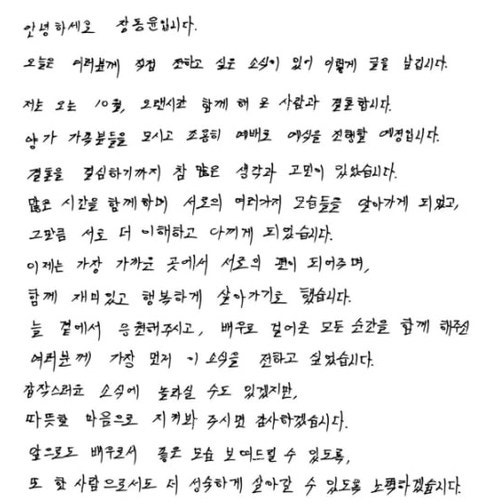 안녕하세요 장동윤입니다.
오늘은 여러분께 직접 전하고 싶은 소식이 있어 이렇게 글을 남깁니다.
저는 오는 10월, 오랜시간 함께 해 온 사람과 결혼합니다.
양가 가족분들을 모시고 조용히 예배로 예식을 진행할 예정입니다.
결혼을 결심하기까지 참 많은 생각과 고민이 있었습니다.
많은 시간을 함께하며 서로의 여러가지 모습들을 알아가게 되었고,
그만큼 서로 더 이해하고 아끼게 되었습니다.
이제는 가장 가까운 곳에서 서로의 편이 되어주며,
함께 재미있고 행복하게 살아가기로 했습니다.
늘 곁에서 응원해주시고, 배우로 걸어온 모든 순간을 함께 해주신
여러분께 가장 먼저 이 소식을 전하고 싶었습니다.
갑작스러운 소식에 놀라실 수도 있겠지만,
따뜻한 마음으로 지켜봐 주시면 감사하겠습니다.
앞으로도 배우로서 좋은 모습 보여드릴 수 있도록,
또 한 사람으로서도 더 성숙하게 살아갈 수 있도록 노력하겠습니다.